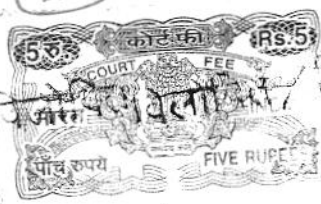 5 रु. कोर्ट फी RS.5
COURT FEE
भारत
पाँच रुपये FIVE RUPEES